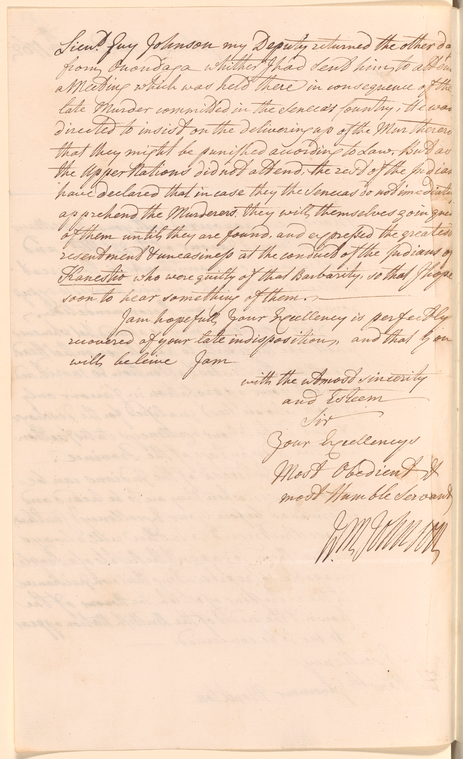 Lieut. Guy Johnson my Deputy returned the other da
from Onondaga whither I had sent him, to attend
a Meeting which was held there in consequence of the
late Murder committed in the Senecas Country, He was
directed to insist on the delivering up of the Murtherers
that they might be punished according to Law, But as
the Upper Nations did not attend, the rest of the Indian
have declared that in case they the Senecas do not imediately
apprehend the Murderers, they will themselves go in quest
of them until they are found, and expressed the greatest
resentment & uneasiness at the conduct of the Indians of
Kanestio who were guilty of that Barbarity, so that I hope
soon to hear something of them.
I am hopefull Your Excellency is perfectly
recovered of your late indisposition, and that you
will beleive I am
with the utmost sincerity
and Esteem
Sir
Your Excellencys
Most Obedient &
most Humble Servant
Wm Johnson